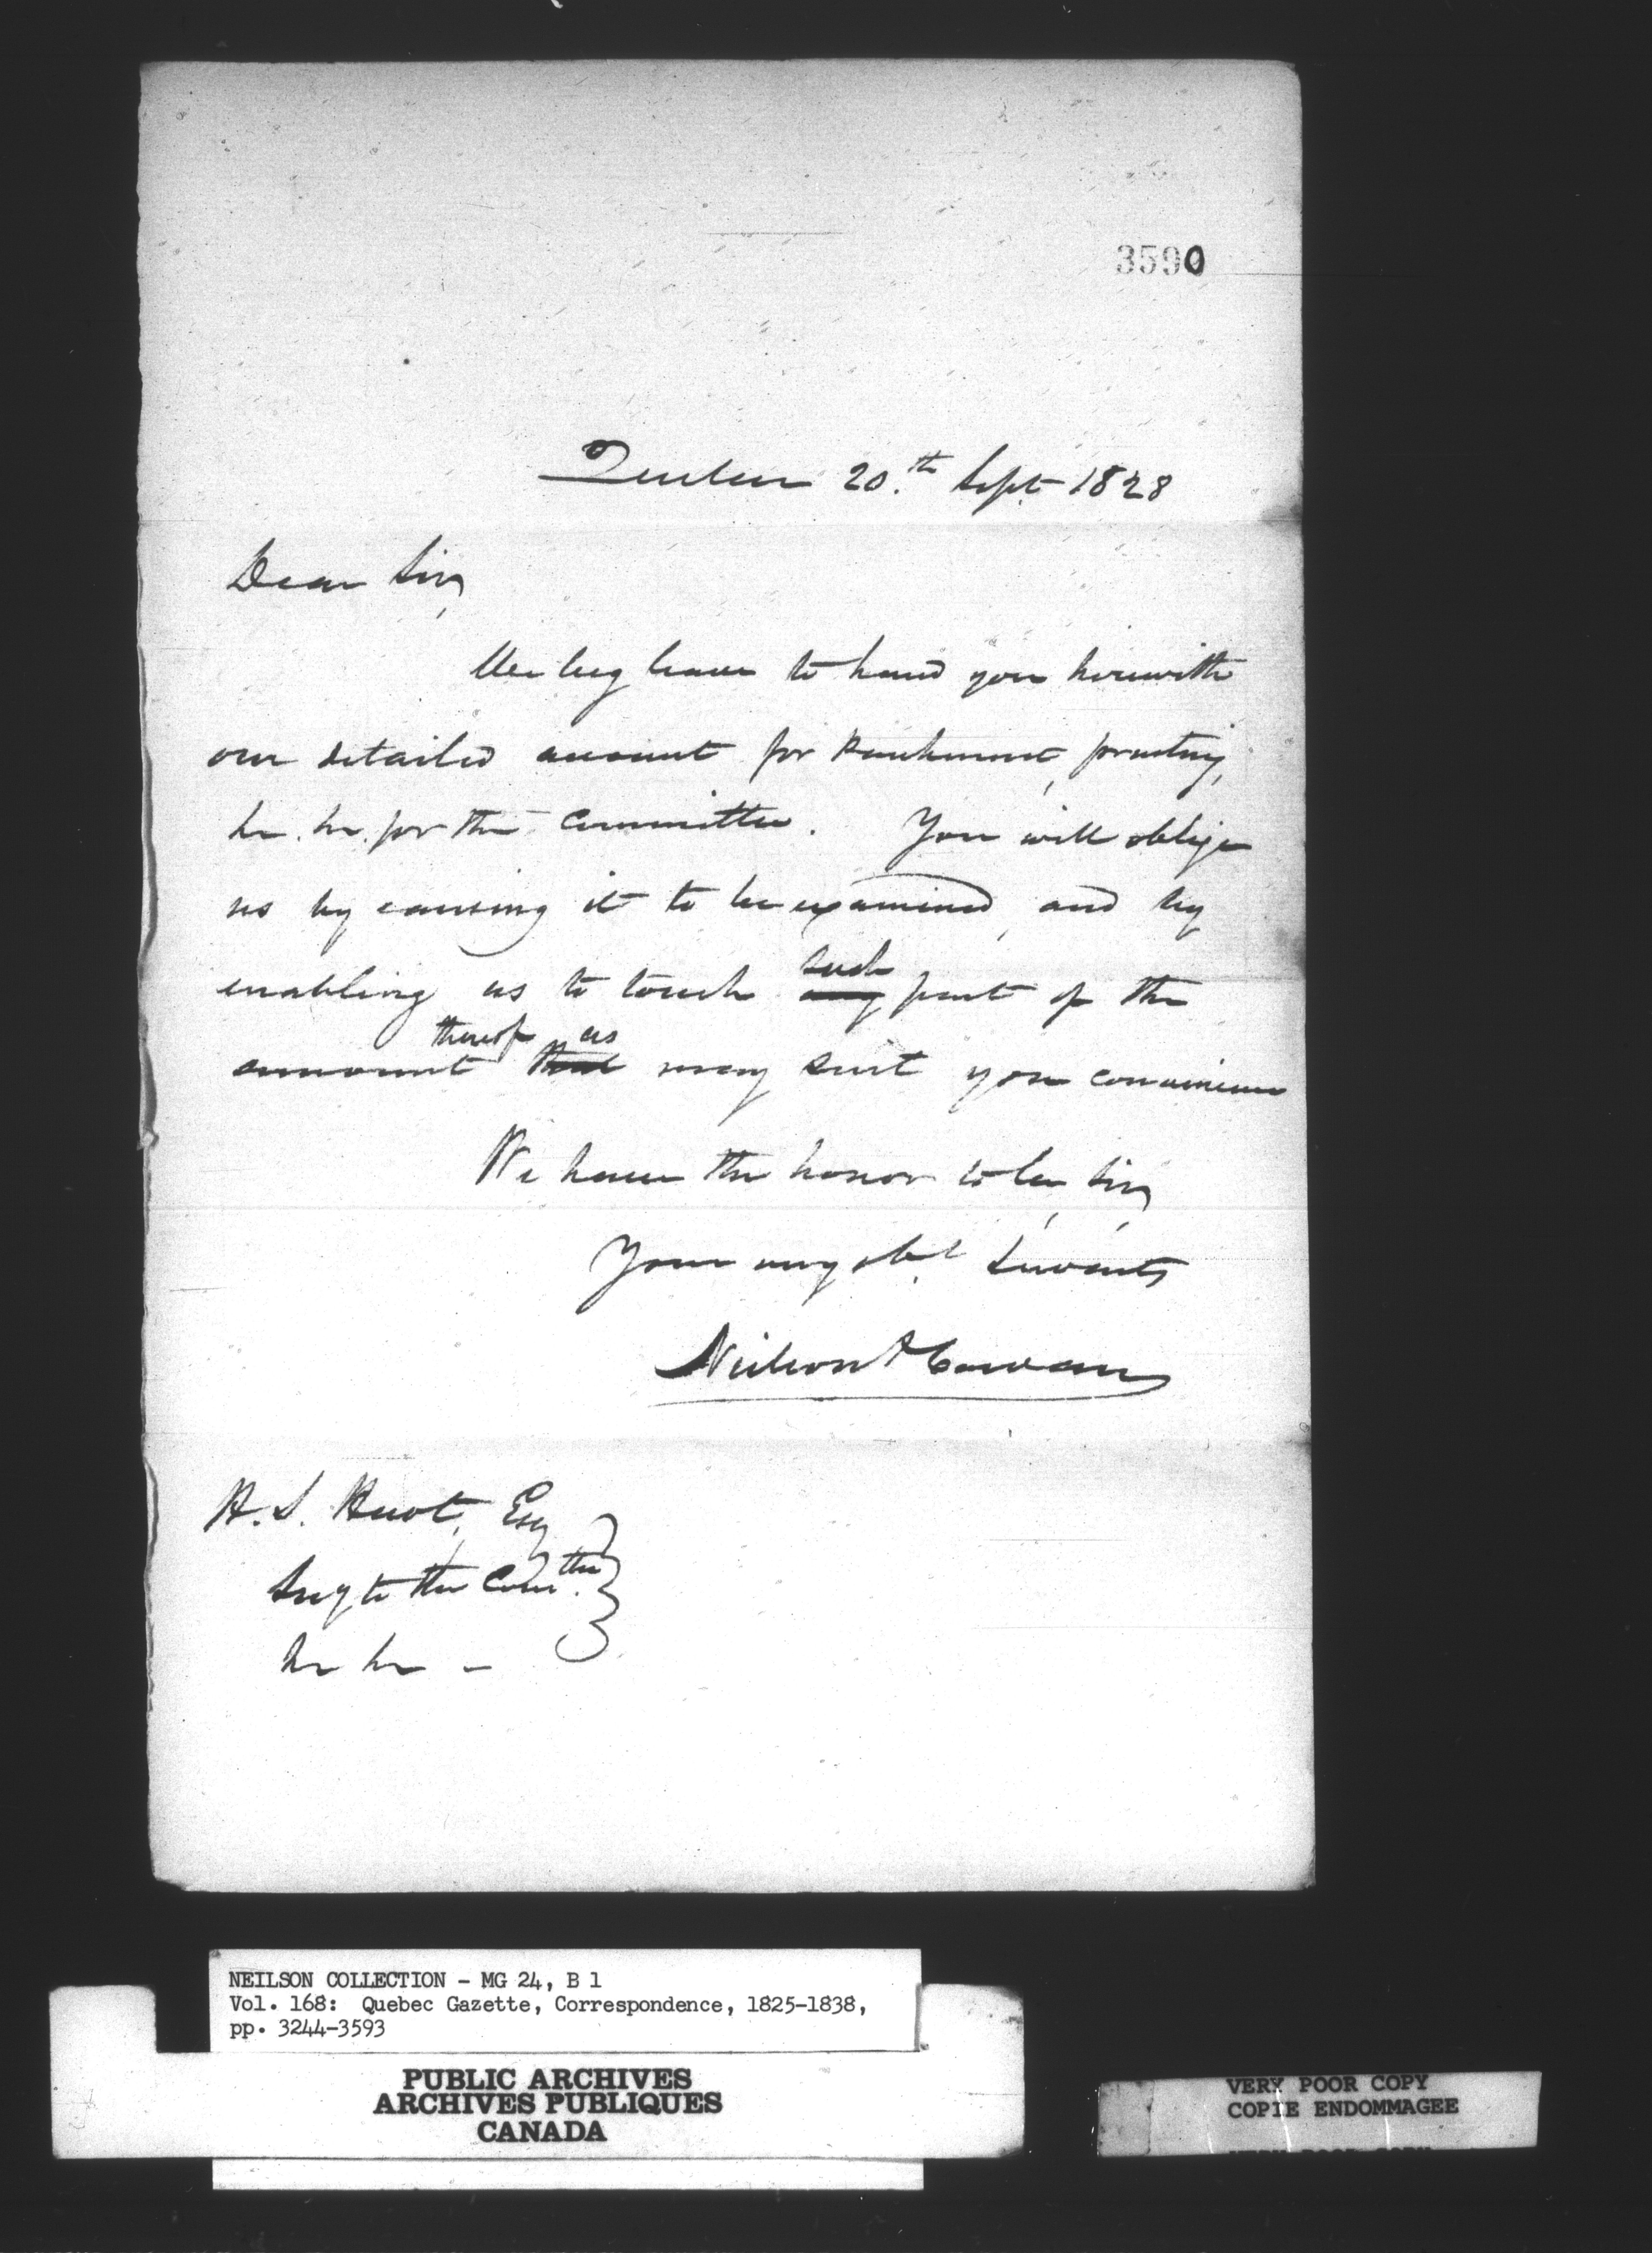 3590
Quebec 20.th Sept 1828
Dear Sir,
We beg leave to hand you herewith
our detailed account for Parchment, printing,
&c. &c. for the Committee. You will oblige
us by causing it to be examined, and by
enabling us to touch any such part of the
amount that thereof as may suit your convenience
We have the honor to be, Sir,
Your very obt. Servants
Neilson & Cowan
H. S. Huot, Esq
Secy to the Comttee.
&c &c -
NEILSON COLLECTION - MG 24, B 1
Vol. 168: Quebec Gazette, Correspondence, 1825-1838,
pp. 3244-3593
PUBLIC ARCHIVES
ARCHIVES PUBLIQUES
CANADA
VERY POOR COPY
COPIE ENDOMMAGEE